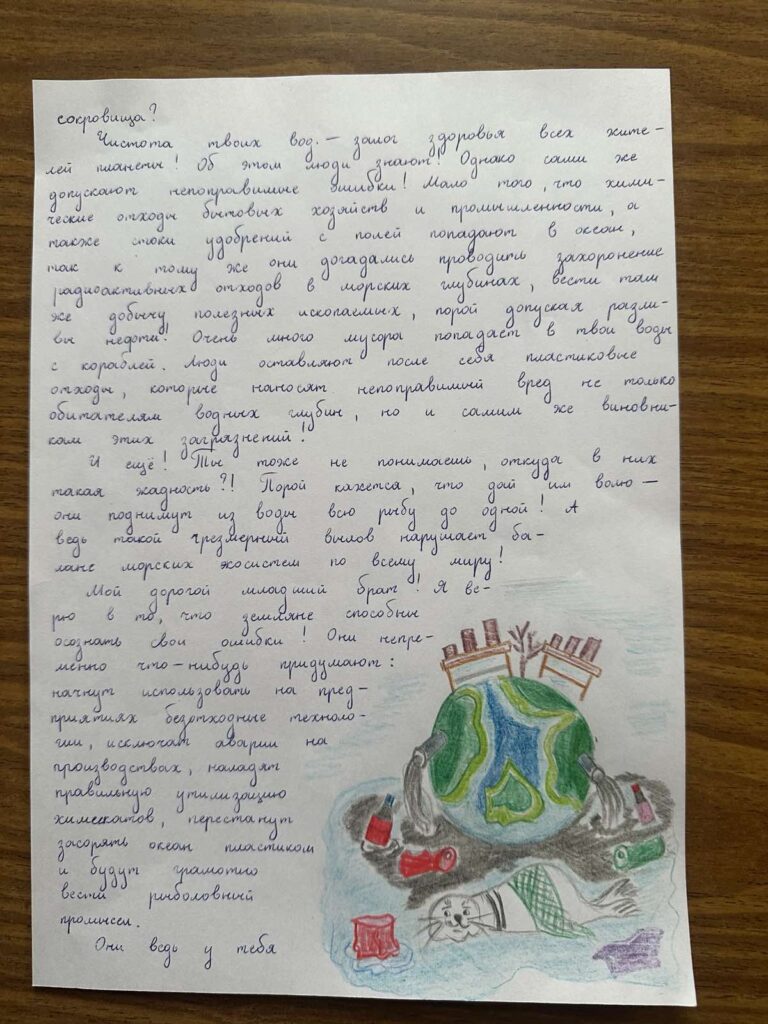 сокровища?
Чистота твоих вод. — залог здоровья всех жите-
лей планеты! Об этом люди знают! Однако сами же
допускают непоправимые ошибки! Мало того, что хими-
ческие отходы бытовых хозяйств и промышленности, а
также стоки удобрений с полей попадают в океан,
так к тому же они догадались проводить захоронение
радиоактивных отходов в морских глубинах, вести там
же добычу полезных ископаемых, порой допуская разли-
вы нефти! Очень много мусора попадает в твои воды
с кораблей. Люди оставляют после себя пластиковые
отходы, которые наносят непоправимый вред не только
обитателям водных глубин, но и самим же виновни-
кам этих загрязнений!
И ещё! Ты тоже не понимаешь, откуда в них
такая жадность?! Порой кажется, что дай им волю —
они поднимут из воды всю рыбу до одной! А
ведь такой чрезмерный вылов нарушает ба-
ланс морских экосистем по всему миру!
Мой дорогой младший брат! Я ве-
рю в то, что земляне способны
осознать свои ошибки! Они непре-
менно что-нибудь придумают:
начнут использовать на пред-
приятиях безотходные техноло-
гии, исключат аварии на
производствах, наладят
правильную утилизацию
химикатов, перестанут
засорять океан пластиком
и будут грамотно
вести рыболовный
промысел.
Они ведь у тебя